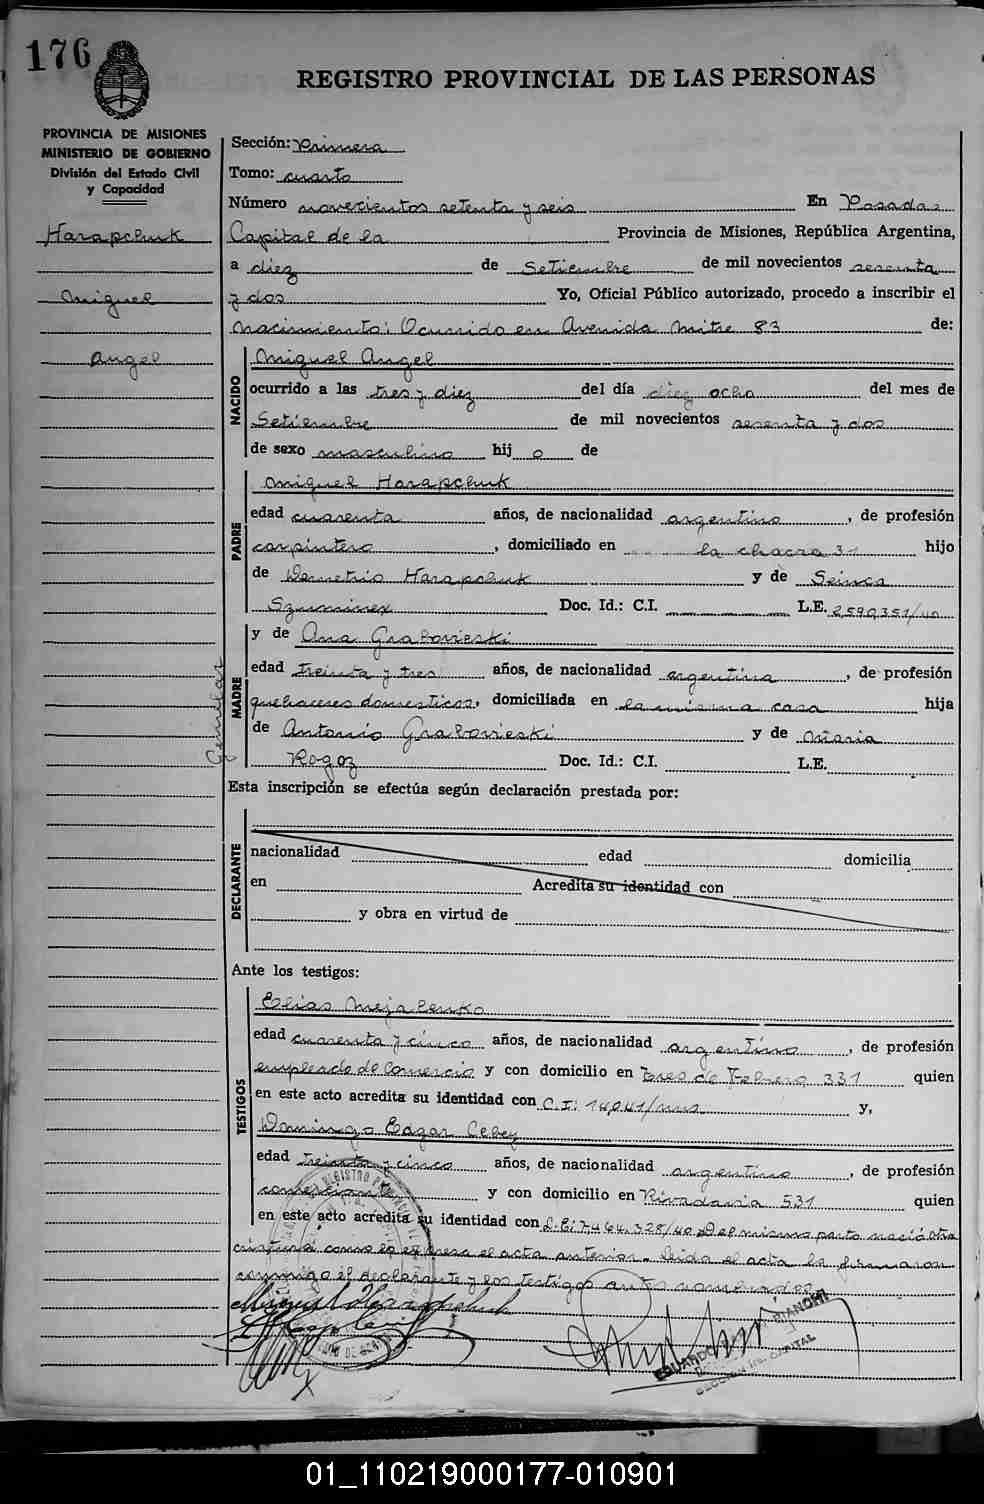 176
REGISTRO PROVINCIAL DE LAS PERSONAS
PROVINCIA DE MISIONES
MINISTERIO DE GOBIERNO
División del Estado Civil
y Capacidad
Harapchuk
Miguel
Angel
Gemelar
Sección: Primera
Tomo: cuarto
Número novecientos setenta y seis En Posadas
Capital de la Provincia de Misiones, República Argentina,
a diez de Setiembre de mil novecientos sesenta
y dos Yo, Oficial Público autorizado, procedo a inscribir el
nacimiento: Ocurrido en Avenida Mitre 83 de:
NACIDO
Miguel Angel
ocurrido a las tres y diez del día diez ocho del mes de
Setiembre de mil novecientos sesenta y dos
de sexo masculino hij o de
PADRE
Miguel Harapchuk
edad cuarenta años, de nacionalidad argentino, de profesión
carpintero, domiciliado en la chacra 31 hijo
de Demetrio Harapchuk y de
Doc. Id.: C.I. L.E. 2.590.351/40
MADRE
y de Ana Grabovieski
edad treinta y tres años, de nacionalidad argentina, de profesión
quehaceres domesticos, domiciliada en la misma casa hija
de Antonio Grabovieski y de Maria
Rogoz Doc. Id.: C.I. L.E.
Esta inscripción se efectúa según declaración prestada por:
DECLARANTE
nacionalidad edad domicilia
en Acredita su identidad con
y obra en virtud de
Ante los testigos:
TESTIGOS
Elias Mejalenko
edad cuarenta y cinco años, de nacionalidad argentino, de profesión
empleado de Comercio y con domicilio en Tres de Febrero 331 quien
en este acto acredita su identidad con C.I: 14041/mns y,
Domingo Edgar Cebey
edad treinta y cinco años, de nacionalidad argentino, de profesión
comerciante y con domicilio en Rivadavia 531 quien
en este acto acredita su identidad con L.E: 7.464.328/40 Del mismo parto nació otra
criatura como lo expresa el acta anterior. Leida el acta la firmaron
conmigo el declarante y los testigos antes nombrados
Miguel Harapchuk
EDUARDO BIANCHI
SECCION CAPITAL
01_110219000177-010901